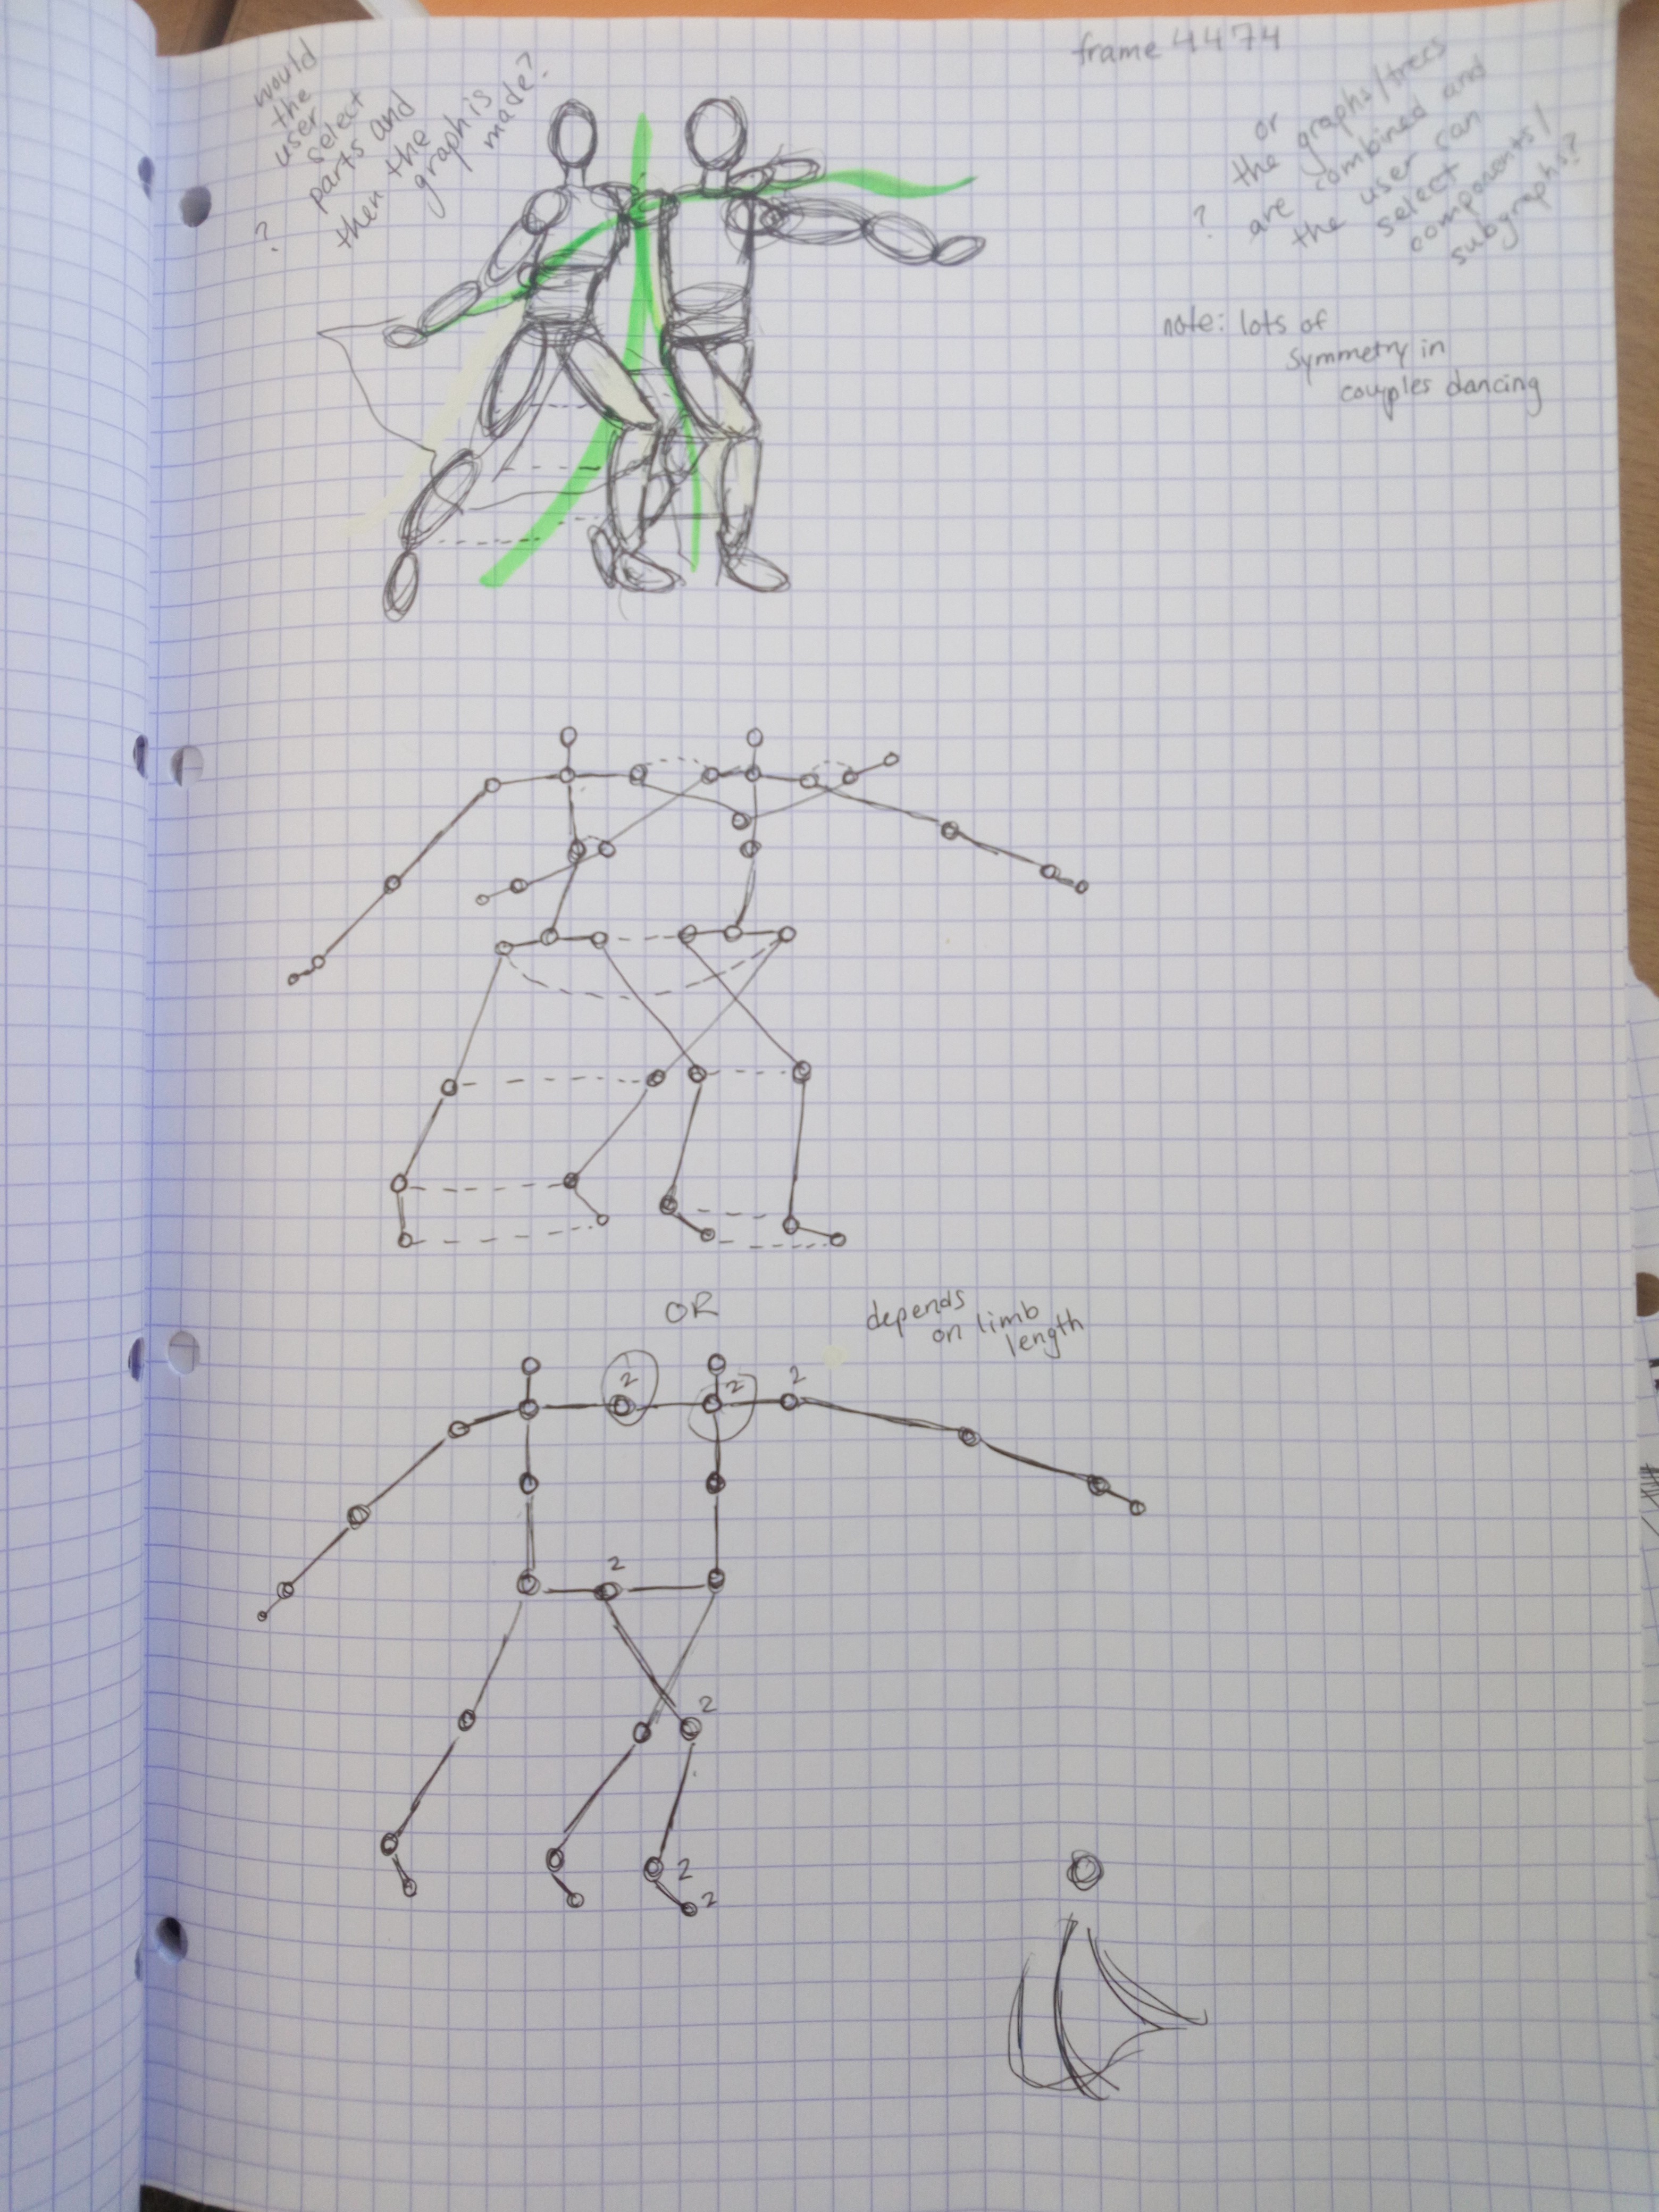 frame 4474
would
the
user
select
parts and
then the
graph is
made?
?
or
the graphs/trees
are combined and
the user can
select
components/
subgraphs?
?
note: lots of
symmetry in
couples dancing
OR
depends
on limb
length
2
2
2
2
2
2
2